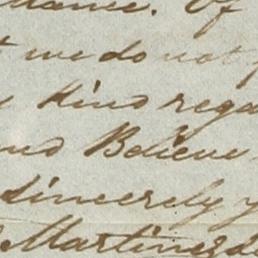 Of
we do not
Kind rega
and Believe
Sincerely y
Martinezde